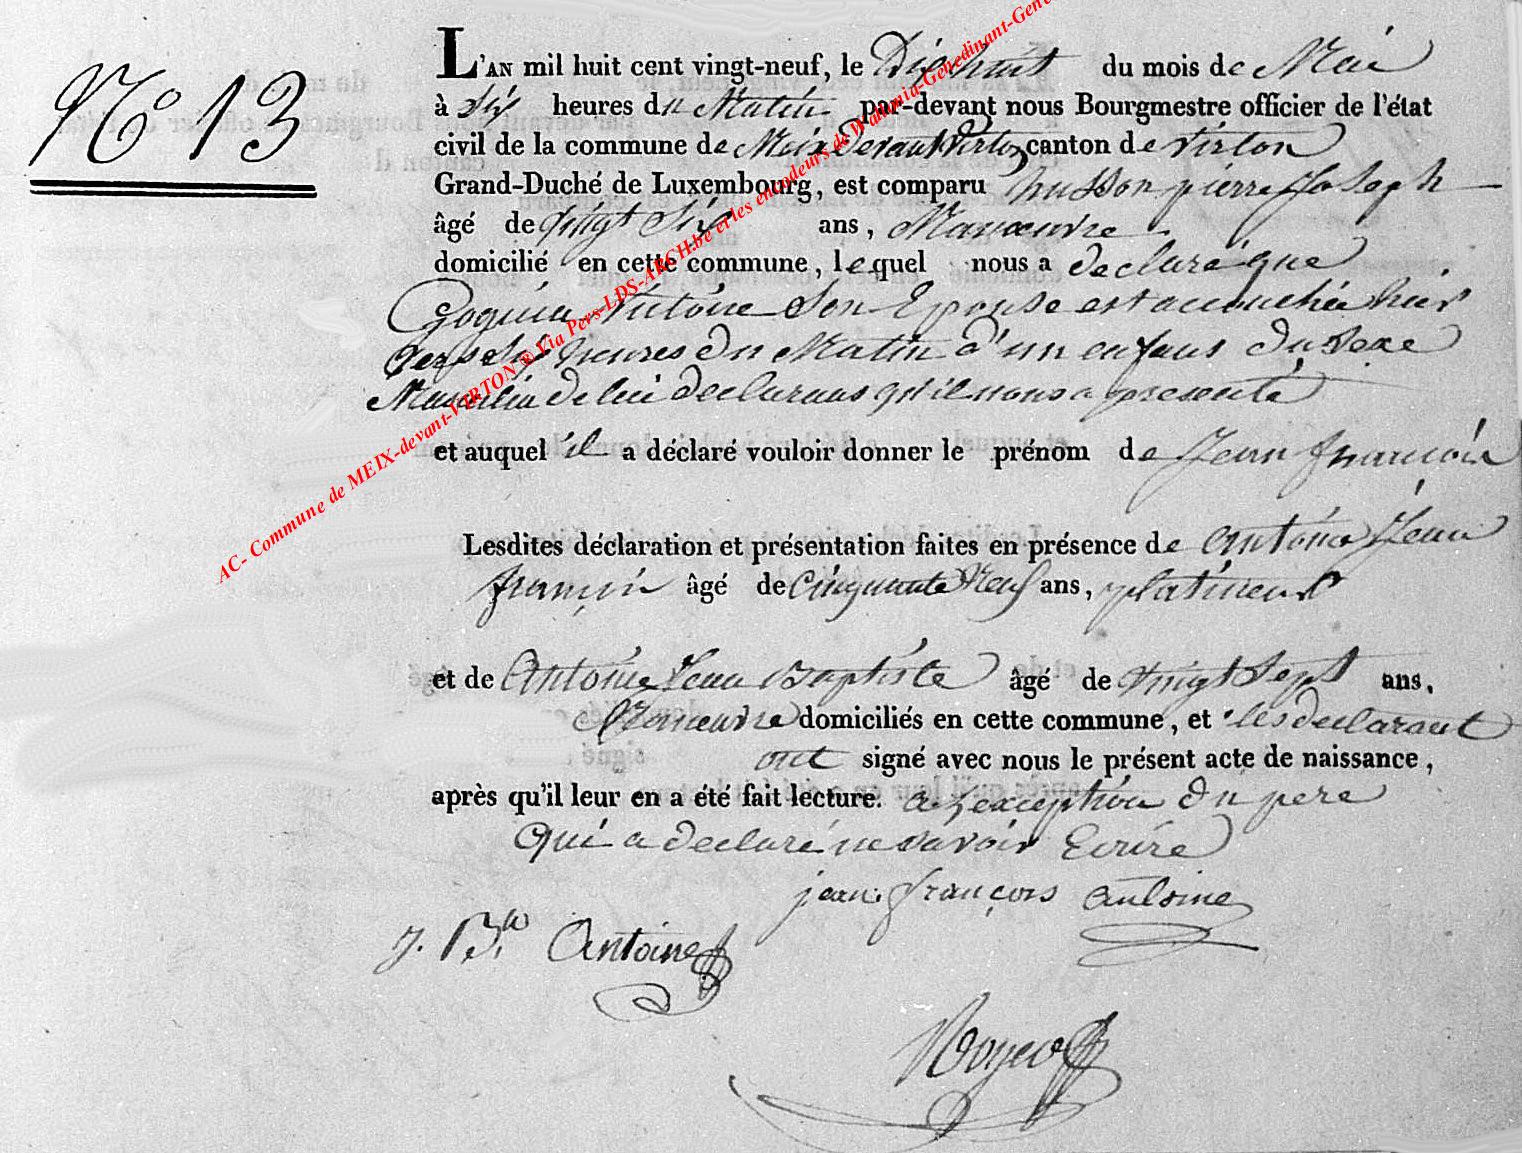 N° 13
L'AN mil huit cent vingt-neuf, le Dixhuit du mois de Mai
à Six heures du Matin par-devant nous Bourgmestre officier de l'état
civil de la commune de Meix Devant Virton canton de virton
Grand-Duché de Luxembourg, est comparu husson pierre Joseph
âgé de Vingt Six ans, Manœuvre
domicilié en cette commune, lequel nous a declaré que
Goguin Victoire Son Epouse est accouchée hier
vers Six heures du Matin d'un enfant du Sexe
Masculin de lui declarant qu'il nous a presenté
et auquel il a déclaré vouloir donner le prénom de Jean françois
Lesdites déclaration et présentation faites en présence de Antoine Jean
françois âgé de Cinquante Neuf ans, platineur
et de Antoine Jean Baptiste âgé de vingt Sept ans,
Manœuvre domiciliés en cette commune, et les declarant
ont signé avec nous le présent acte de naissance,
après qu'il leur en a été fait lecture. a l'exception du pere
Qui a declaré ne savoir Ecrire
jean françois antoine
J. Bte Antoine
AC- Commune de MEIX-devant-VIRTON ® Via Pers-LDS-ARCH.be et les encodeurs de Wallonia-Genedinant-Gene